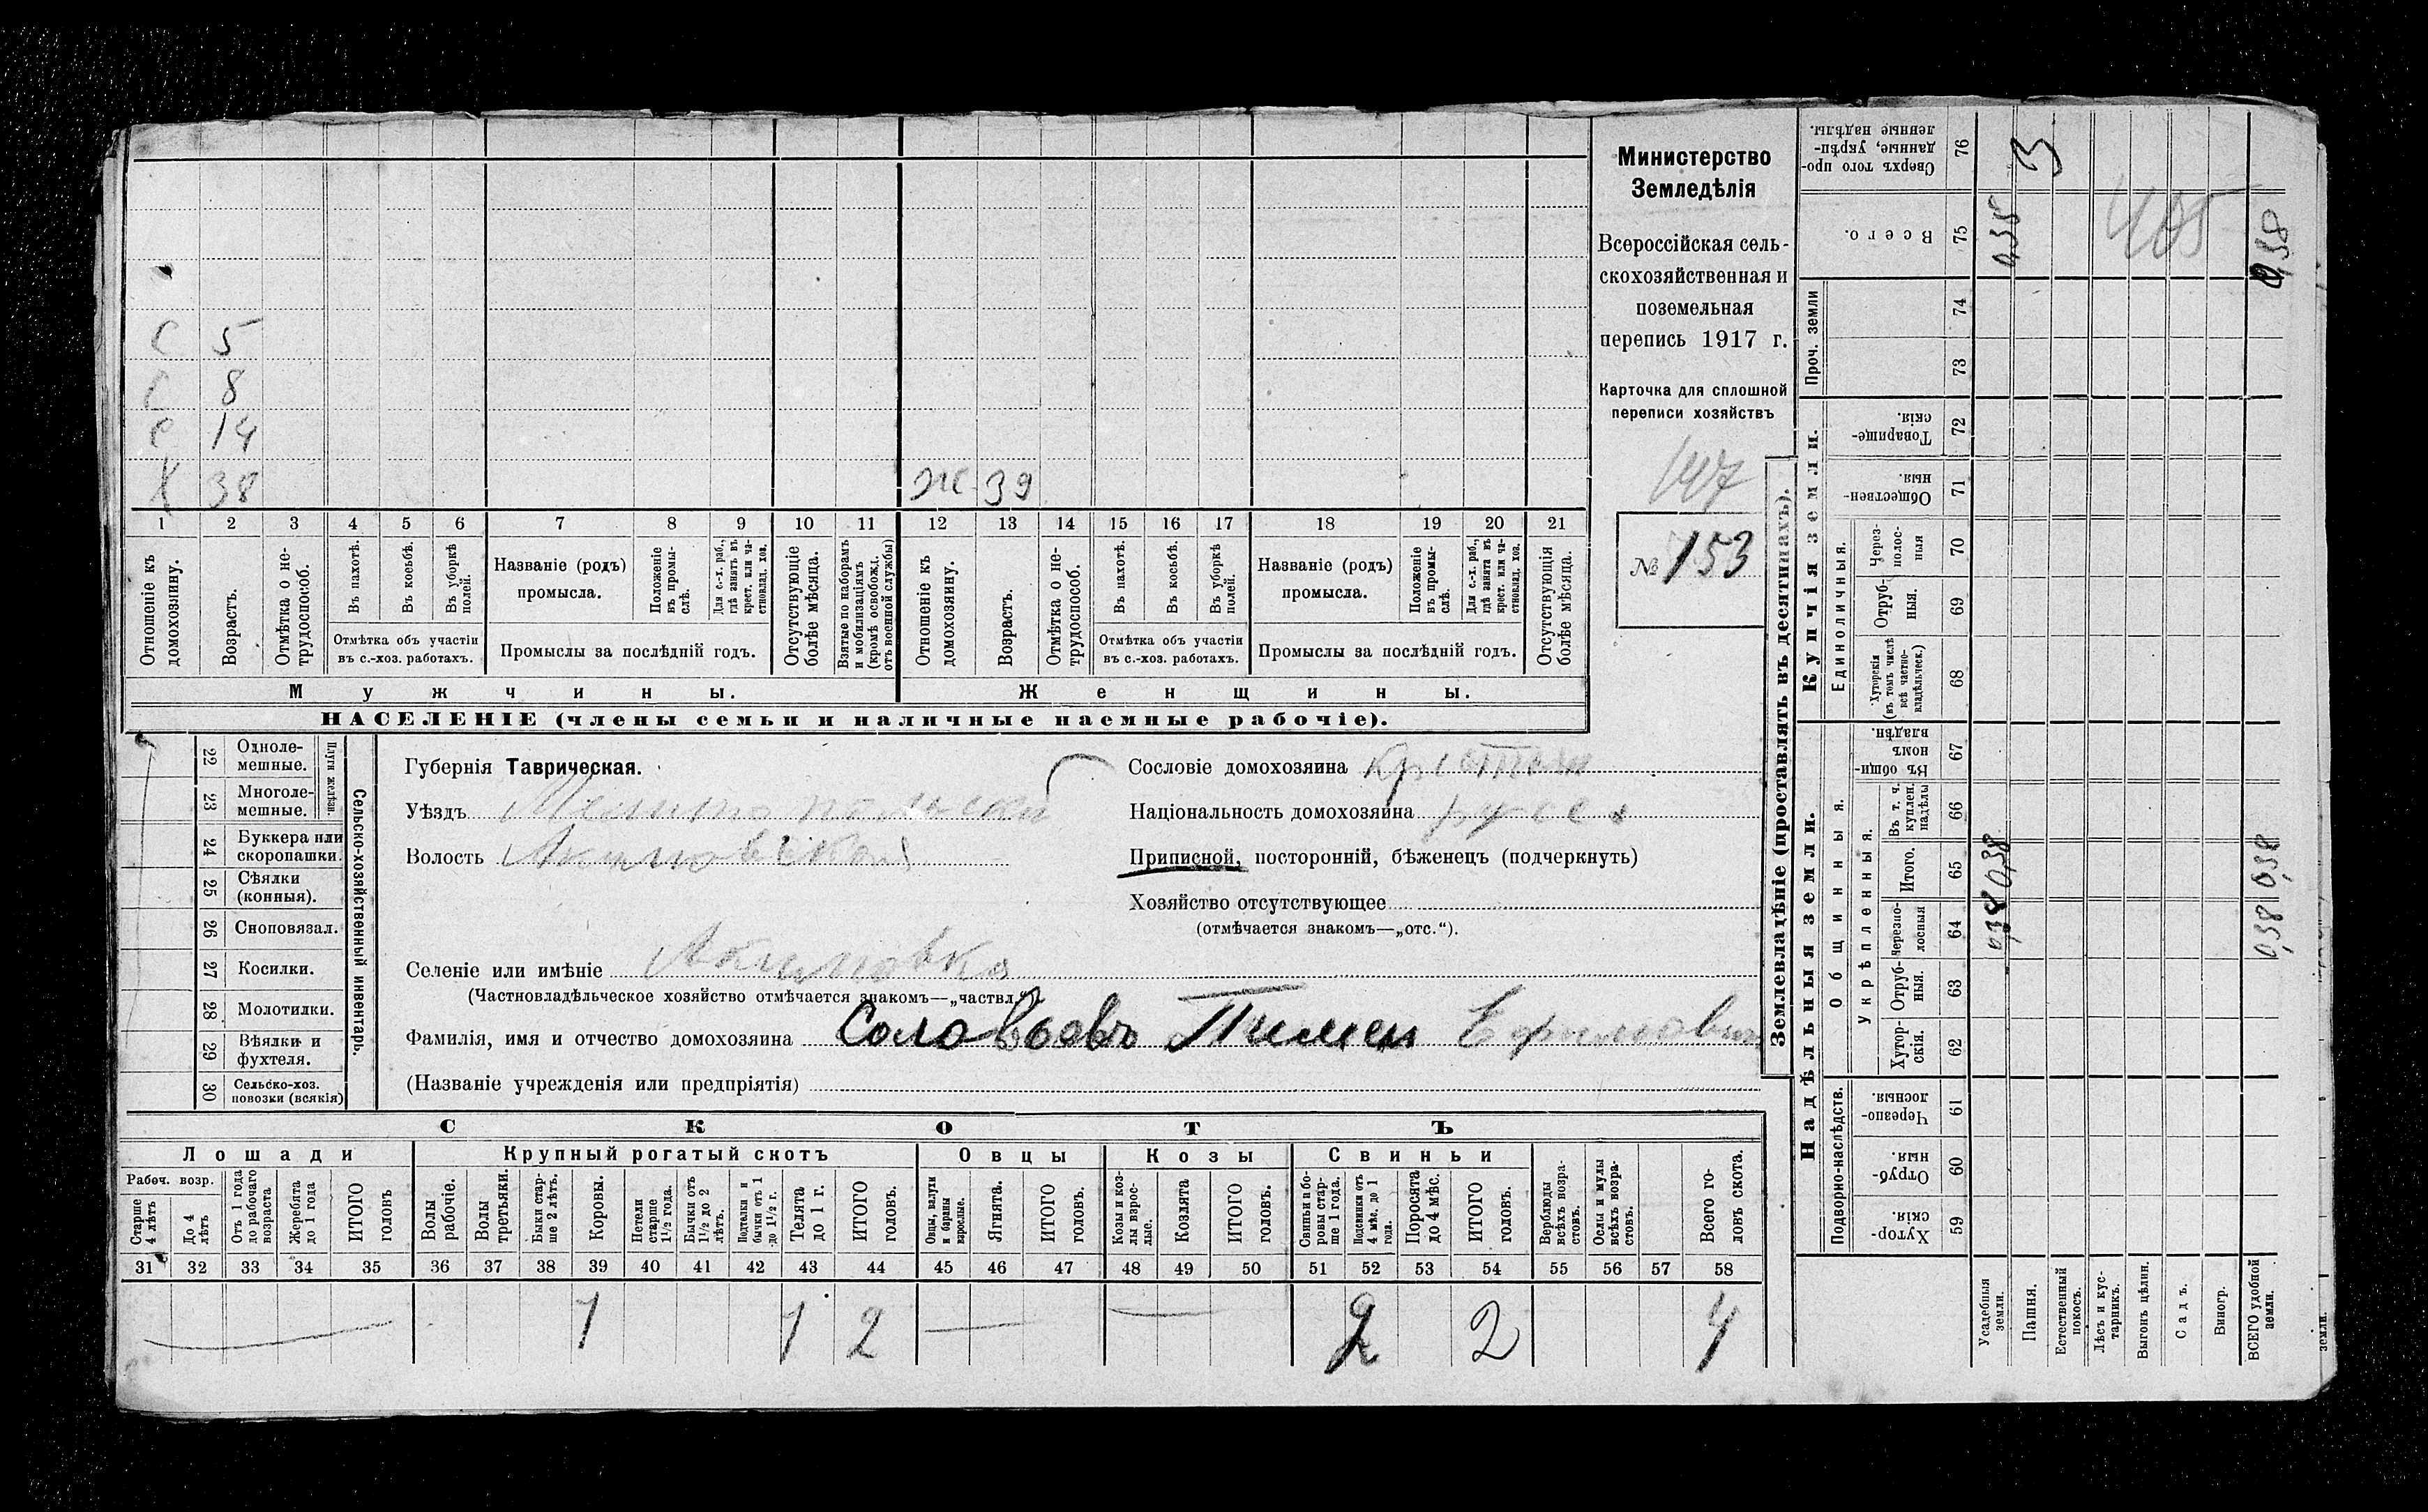 С 5
С 8
С 14
Х 38 Ж 39
1 2 3 4 5 6 7 8 9 10 11 12 13 14 15 16 17 18 19 20 21
Отношеніе къ домохозяину.
Возрастъ.
Отмѣтка о не-трудоспособ.
Въ пахотѣ.
Въ косьбѣ.
Въ уборкѣ полей.
Отмѣтка объ участіи
въ с.-хоз. работахъ.
Названіе (родъ)
промысла.
Положеніе въ промы-слѣ.
Для с.-х. раб., гдѣ занятъ въ крест. или ча-стновлад. хоз.
Промыслы за послѣдній годъ.
Отсутствующіе болѣе мѣсяца.
Взятые по наборамъ и мобилизаціямъ (кромѣ освобожд. отъ военной службы)
Отношеніе къ домохозяину.
Возрастъ.
Отмѣтка о не-трудоспособ.
Въ пахотѣ.
Въ косьбѣ.
Въ уборкѣ полей.
Отмѣтка объ участіи
въ с.-хоз. работахъ.
Названіе (родъ)
промысла.
Положеніе въ промы-слѣ.
Для с.-х. раб., гдѣ занята въ крест. или ча-стновлад. хоз.
Промыслы за послѣдній годъ.
Отсутствующія болѣе мѣсяца.
Мужчины. Женщины.
НАСЕЛЕНІЕ (члены семьи и наличные наемные рабочіе).
Министерство
Земледѣлія
Всероссійская сель-
скохозяйственная и
поземельная
перепись 1917 г.
Карточка для сплошной
переписи хозяйствъ
147
№ 153
Сельско-хозяйственный инвентарь.
Плуги желѣзн.
22 Одноле-мешные.
23 Многоле-мешные.
24 Буккера или скоропашки.
25 Сѣялки (конныя).
26 Сноповязал.
27 Косилки.
28 Молотилки.
29 Вѣялки и фухтеля.
30 Сельско-хоз. повозки (всякія)
Губернія Таврическая.
Уѣздъ Мелитопольскій
Волость Акимовской
Селеніе или имѣніе Акимовка
(Частновладѣльческое хозяйство отмѣчается знакомъ—„частвл.“)
Фамилія, имя и отчество домохозяина Соловьевъ Пимен Ефимович
(Названіе учрежденія или предпріятія)
Сословіе домохозяина
Національность домохозяина русск
Приписной, посторонній, бѣженецъ (подчеркнуть)
Хозяйство отсутствующее
(отмѣчается знакомъ—„отс.“).
СКОТЪ
Лошади Крупный рогатый скотъ Овцы Козы Свиньи
Рабоч. возр.
Старше 4 лѣтъ
До 4 лѣтъ
Отъ 1 года до рабочаго возраста
Жеребята до 1 года
ИТОГО головъ
Волы рабочіе.
Волы третьяки.
Быки стар-ше 2 лѣтъ.
Коровы.
Нетели старше 1½ года.
Бычки отъ 1½ до 2 лѣтъ.
Подтелки и бычки отъ 1 до 1½ г.
Телята до 1 г.
ИТОГО головъ.
Овцы, валухи и бараны взрослые.
Ягнята.
ИТОГО головъ.
Козы и коз-лы взрос-лые.
Козлята
ИТОГО головъ.
Свиньи и бо-ровы стар-ше 1 года.
Подсвинки отъ 4 мѣс. до 1 года.
Поросята до 4 мѣс.
ИТОГО головъ.
Верблюды всѣхъ возра-стовъ.
Ослы и мулы всѣхъ возра-стовъ.
Всего го-ловъ скота.
31 32 33 34 35 36 37 38 39 40 41 42 43 44 45 46 47 48 49 50 51 52 53 54 55 56 57 58
1 1 2 2 2 4
Землевладѣніе (проставлять въ десятинахъ).
Надѣльныя земли. Купчія земли.
Подворно-наслѣдств.
Общинныя.
Укрѣпленныя.
Единоличныя.
Проч. земли
Хутор-скія. 59
Отруб-ныя. 60
Черезпо-лосныя. 61
Хутор-скія. 62
Отруб-ныя. 63
Черезпо-лосныя 64
Итого. 65
Въ т. ч. куплен. надѣлы 66
Въ общин-номъ владѣн. 67
Хуторскія (въ томъ числѣ всѣ частно-владѣльческ.) 68
Отруб-ныя. 69
Через-полос-ныя 70
Обществен-ныя. 71
Товарище-скія. 72
73
74
Всего. 75
Сверхъ того про-данные, укрѣп-ленные надѣлы. 76
Усадебныя земли. 0,38 0,38
Пашня. 3
Естественный покосъ.
Лѣсъ и кус-тарникъ.
Выгонъ цѣлин.
Садъ.
Виногр.
ВСЕГО удобной земли. 0,38 0,38 0,38
земли.